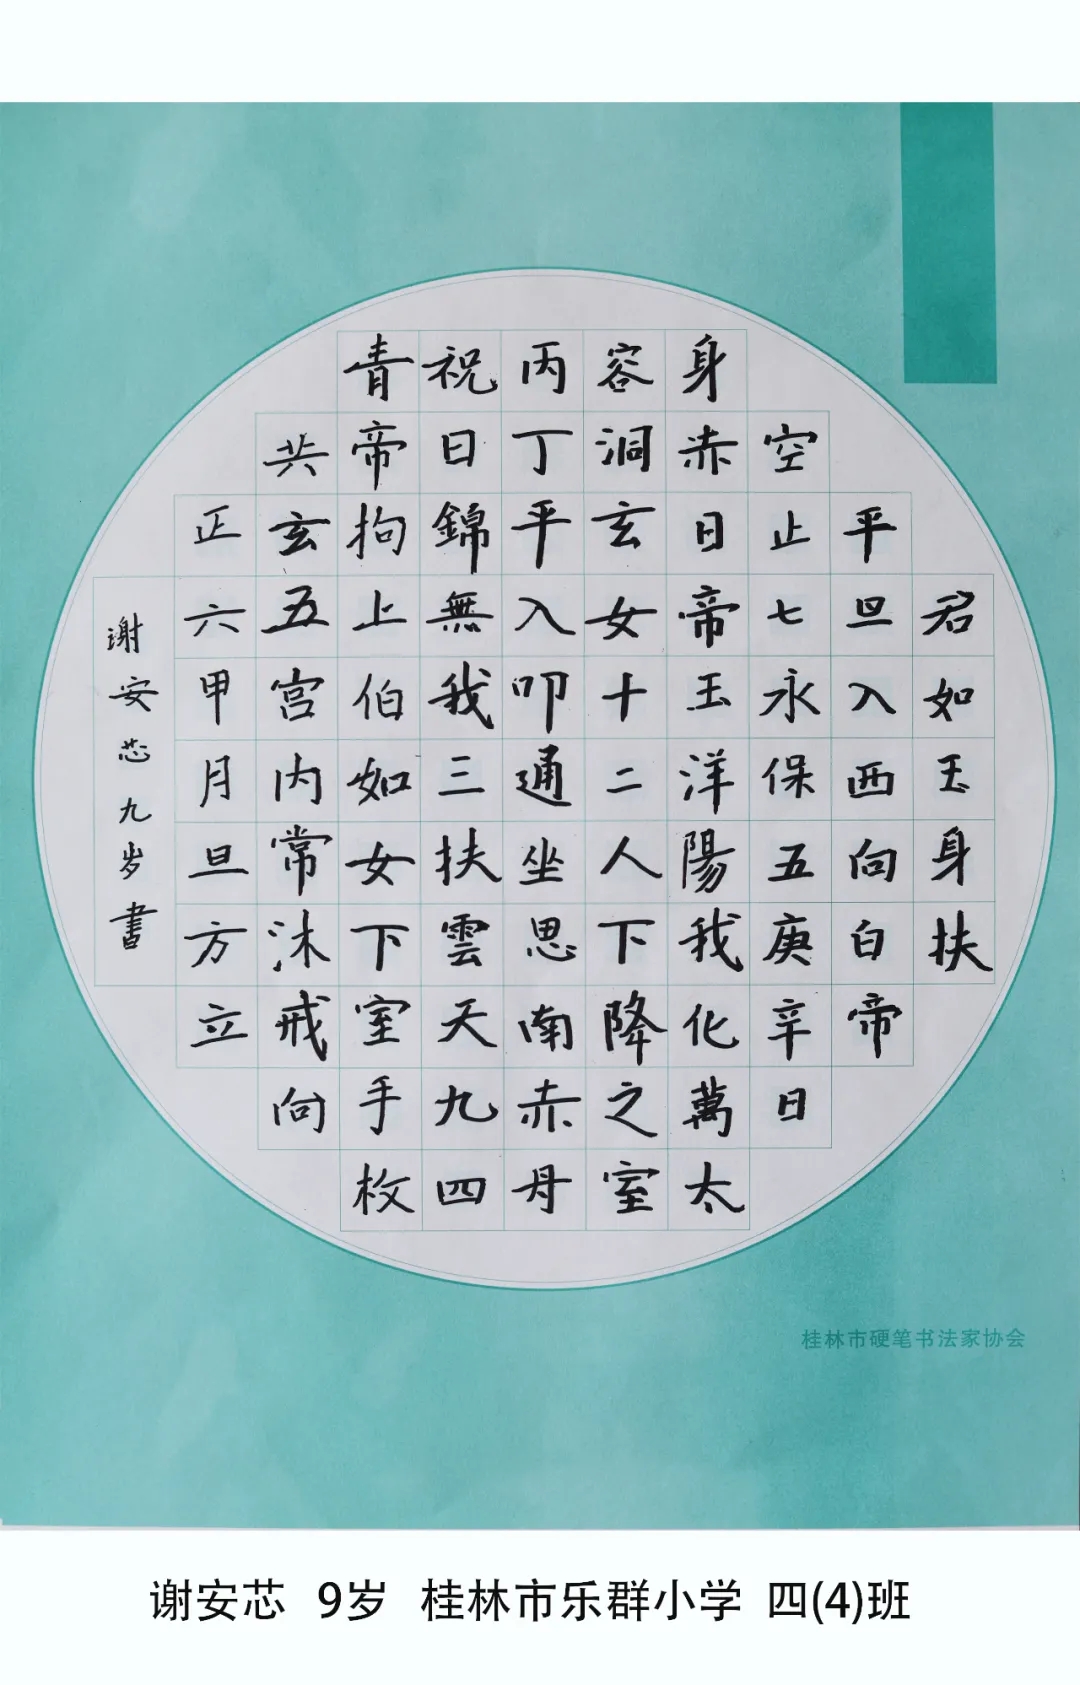 君如玉身扶
平旦入西向白帝
空止七永保五庚辛日
身赤日帝玉洋陽我化萬太
容洞玄女十二人下降之室
丙丁平入叩通坐思南赤丹
祝日錦無我三扶雲天九四
青帝拘上伯如女下室手枚
共玄五宫内常沐戒向
正六甲月旦方立
谢安芯九岁書
桂林市硬笔书法家协会
谢安芯 9岁 桂林市乐群小学 四(4)班